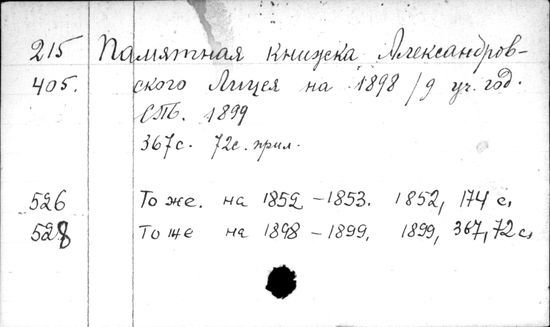 215 Памятная книжка Александров-
405. ского Лицея на 1898/9 уч. год.
СПб. 1899
367 с. 72 с. прил.
526 То же. на 1852 – 1853. 1852, 174 с.
528 То же на 1898 – 1899, 1899, 367, 72 с.